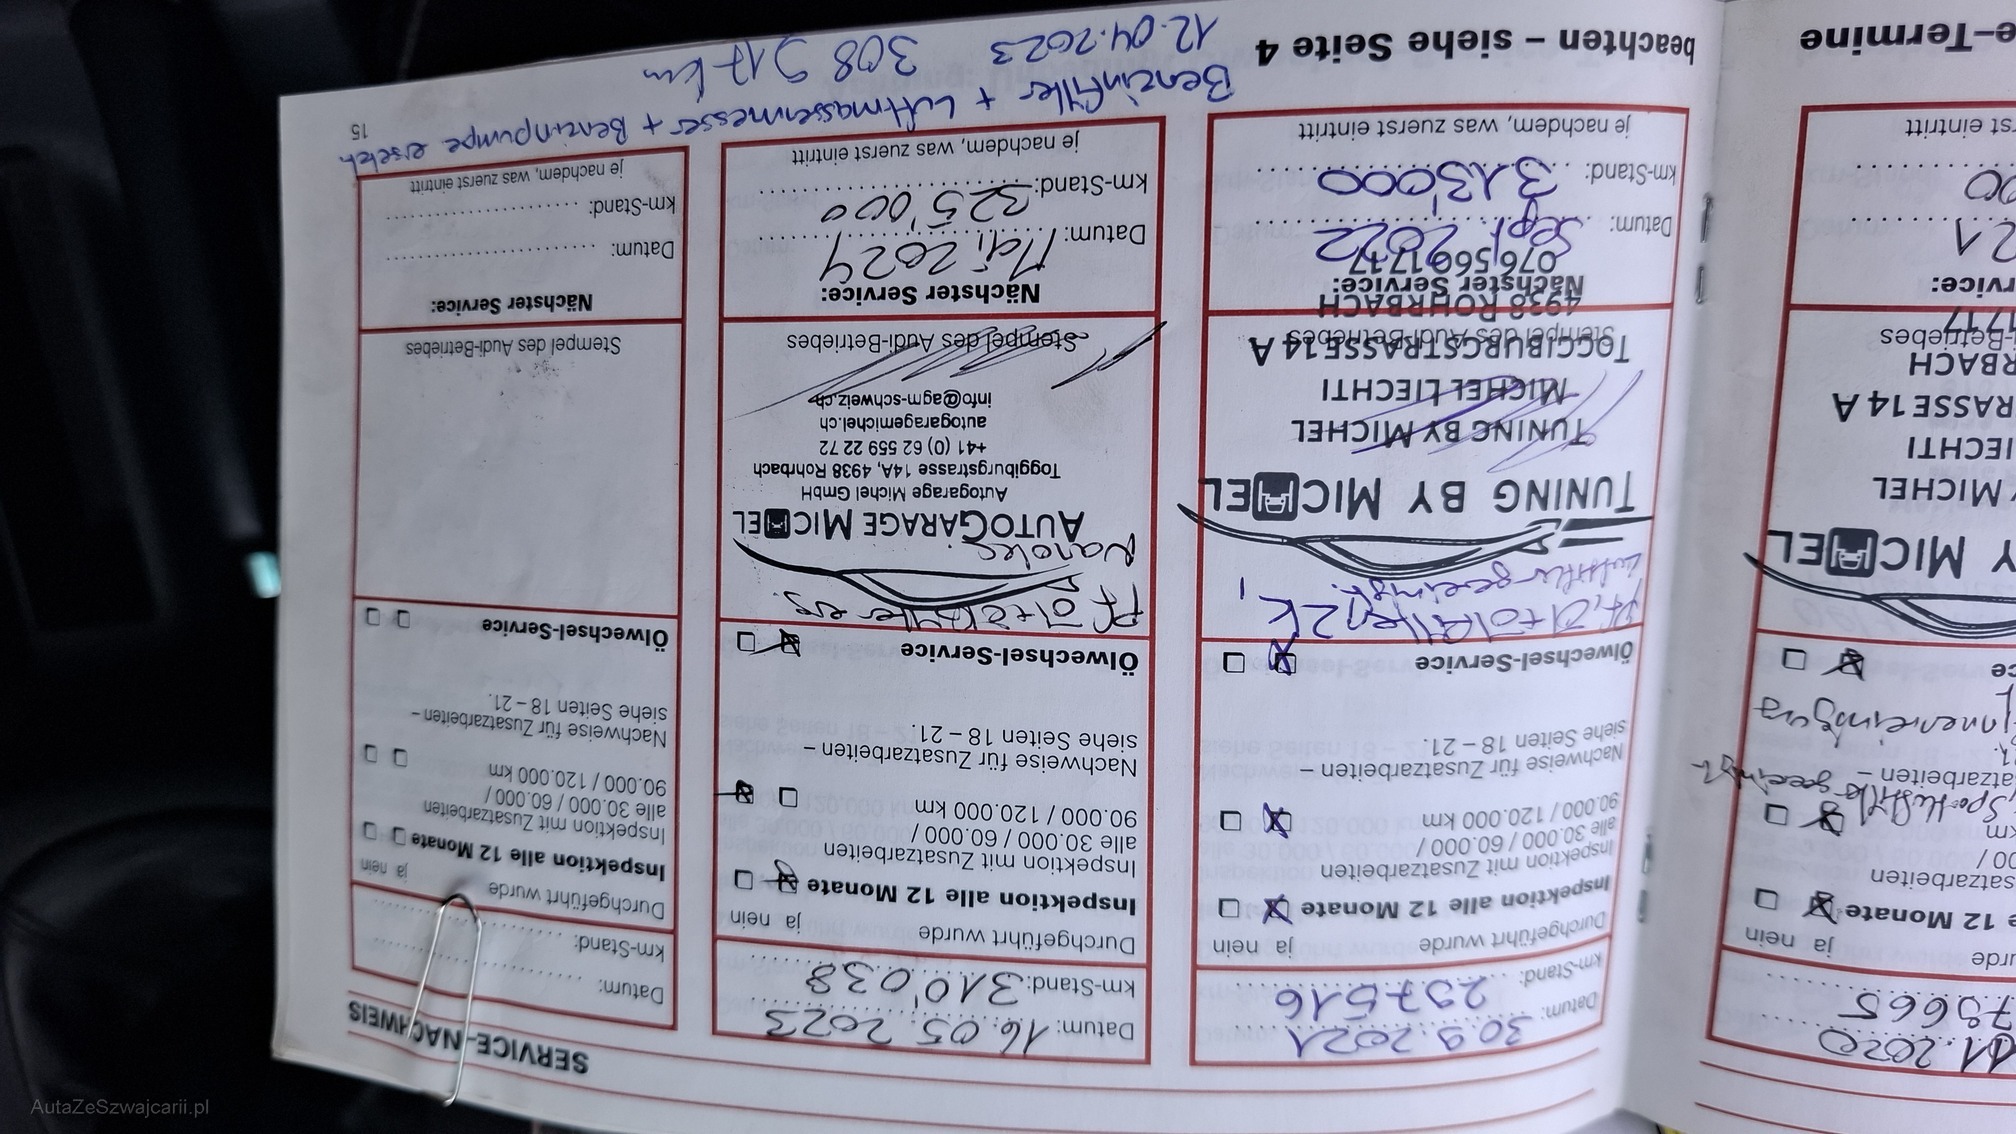 SERVICE-NACHWEIS
11.2020
79665
rde ja nein
e 12 Monate
satzarbeiten
00 /
km
Sportluftfilter gereinigt
atzarbeiten –
Innenreinigung
ce
MICHEL
BY MICHEL
MICHEL
IECHTI
RASSE 14 A
RBACH
i-Betriebes
1717
rvice:
21
00
rst eintritt
e-Termine
Datum: 30.9.2021
km-Stand: 297516
Durchgeführt wurde ja nein
Inspektion alle 12 Monate
Inspektion mit Zusatzarbeiten
alle 30.000 / 60.000 /
90.000 / 120.000 km
Nachweise für Zusatzarbeiten –
siehe Seiten 18 – 21.
Ölwechsel-Service
Pf, Öl + Ölfilter, ZK,
Luftfilter gereinigt.
TUNING BY MICHEL
TUNING BY MICHEL
MICHEL LIECHTI
TOGGIBURGSTRASSE 14 A
Stempel des Audi-Betriebes
4938 ROHRBACH
Nächster Service:
076 566 17 17
Datum: Sept. 2022
km-Stand: 313'000
je nachdem, was zuerst eintritt
beachten – siehe Seite 4
Datum: 16.05.2023
km-Stand: 310'038
Durchgeführt wurde ja nein
Inspektion alle 12 Monate
Inspektion mit Zusatzarbeiten
alle 30.000 / 60.000 /
90.000 / 120.000 km
Nachweise für Zusatzarbeiten –
siehe Seiten 18 – 21.
Ölwechsel-Service
Pf Öl + Ölfilter ers.
Nanolec
AUTOGARAGE MICHEL
Autogarage Michel GmbH
Toggiburgstrasse 14A, 4938 Rohrbach
+41 (0) 62 559 22 72
autogaragemichel.ch
info@agm-schweiz.ch
Stempel des Audi-Betriebes
Nächster Service:
Datum: Mai 2024
km-Stand: 325'000
je nachdem, was zuerst eintritt
Datum:
km-Stand:
Durchgeführt wurde ja nein
Inspektion alle 12 Monate
Inspektion mit Zusatzarbeiten
alle 30.000 / 60.000 /
90.000 / 120.000 km
Nachweise für Zusatzarbeiten –
siehe Seiten 18 – 21.
Ölwechsel-Service
Stempel des Audi-Betriebes
Nächster Service:
Datum:
km-Stand:
je nachdem, was zuerst eintritt
15
Benzinfilter + Luftmassenmesser + Benzinpumpe ersetzt
12.04.2023 308 917 km
AutaZeSzwajcarii.pl